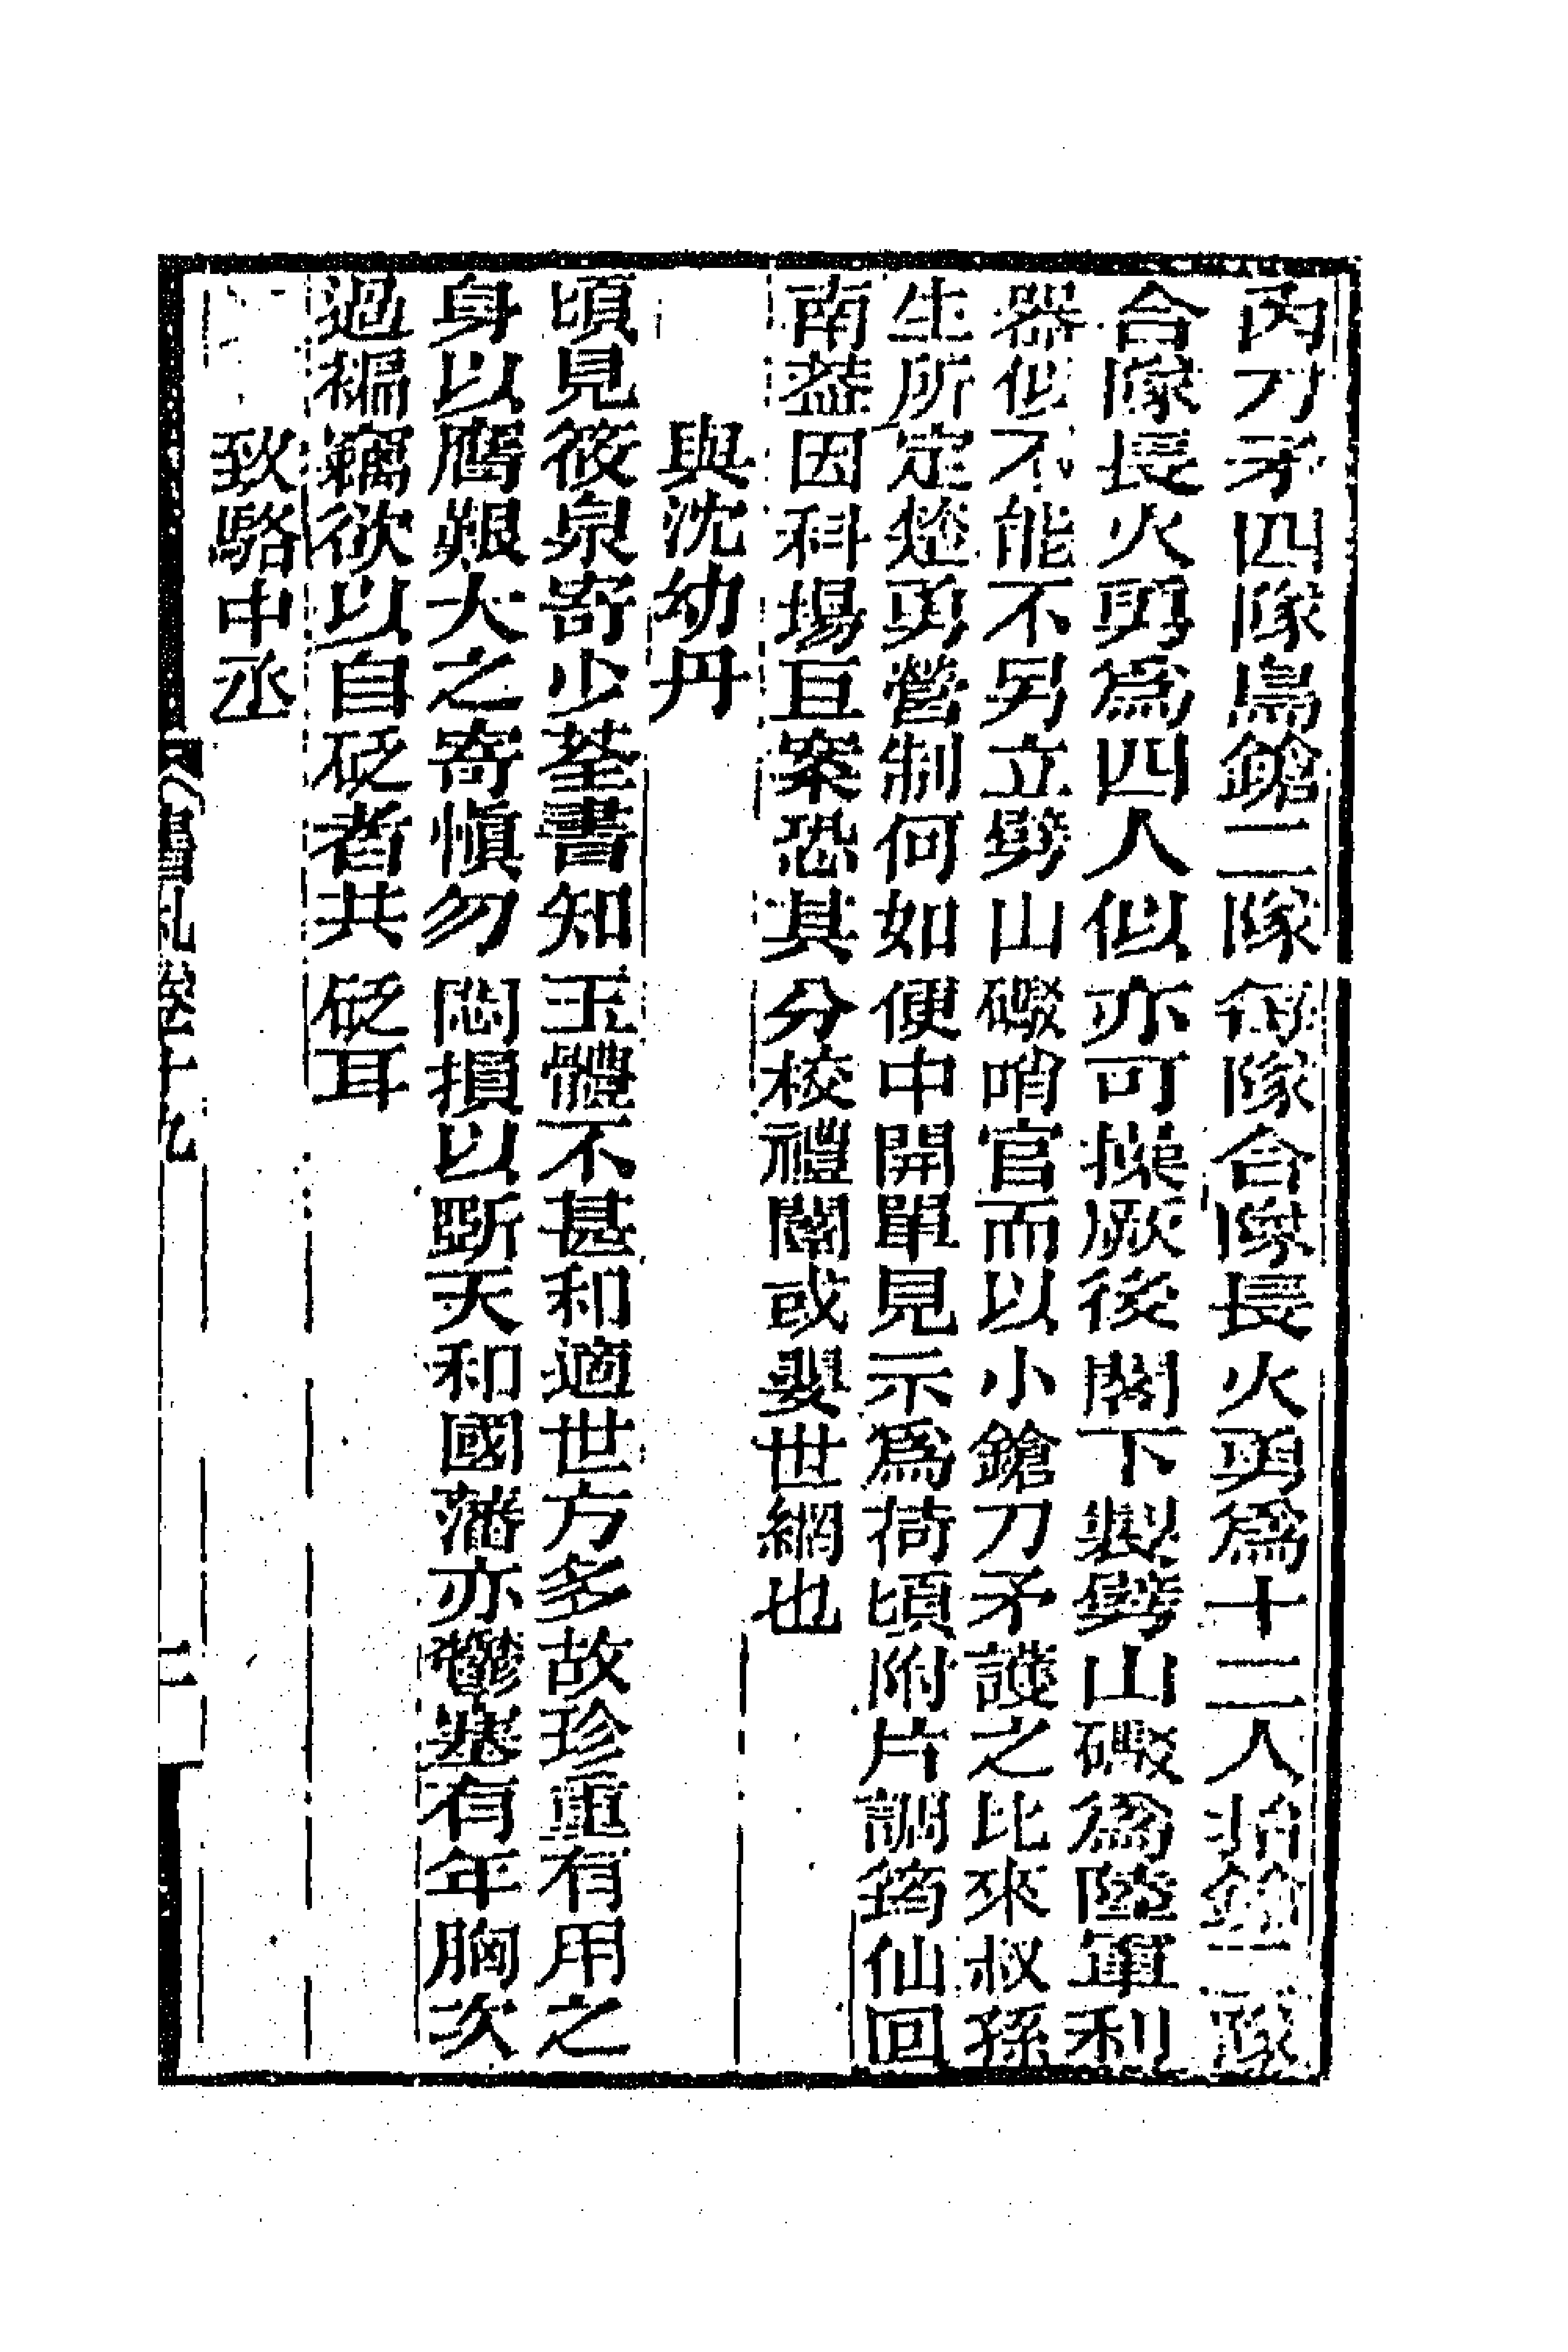 丙刀矛四隊鳥鎗二隊每隊合隊長火勇爲十二人抬鎗二隊
合隊長火勇爲四人似亦可操厥後閣下製劈山礮爲陸軍利
器似不能不另立劈山礮哨官而以小鎗刀矛護之比來叔孫
生所定楚勇營制何如便中開單見示爲荷頃附片調筠仙回
南葢因科場亘案恐其分校禮闈或嬰世網也
與沈幼丹
頃見筱泉寄少荃書知玉體不甚和適世方多故珍重有用之
身以膺艱大之寄愼勿悶損以斲天和國藩亦鬱塞有年胸次
過褊竊欲以自砭者共砭耳
致駱中丞
書札卷十九
二